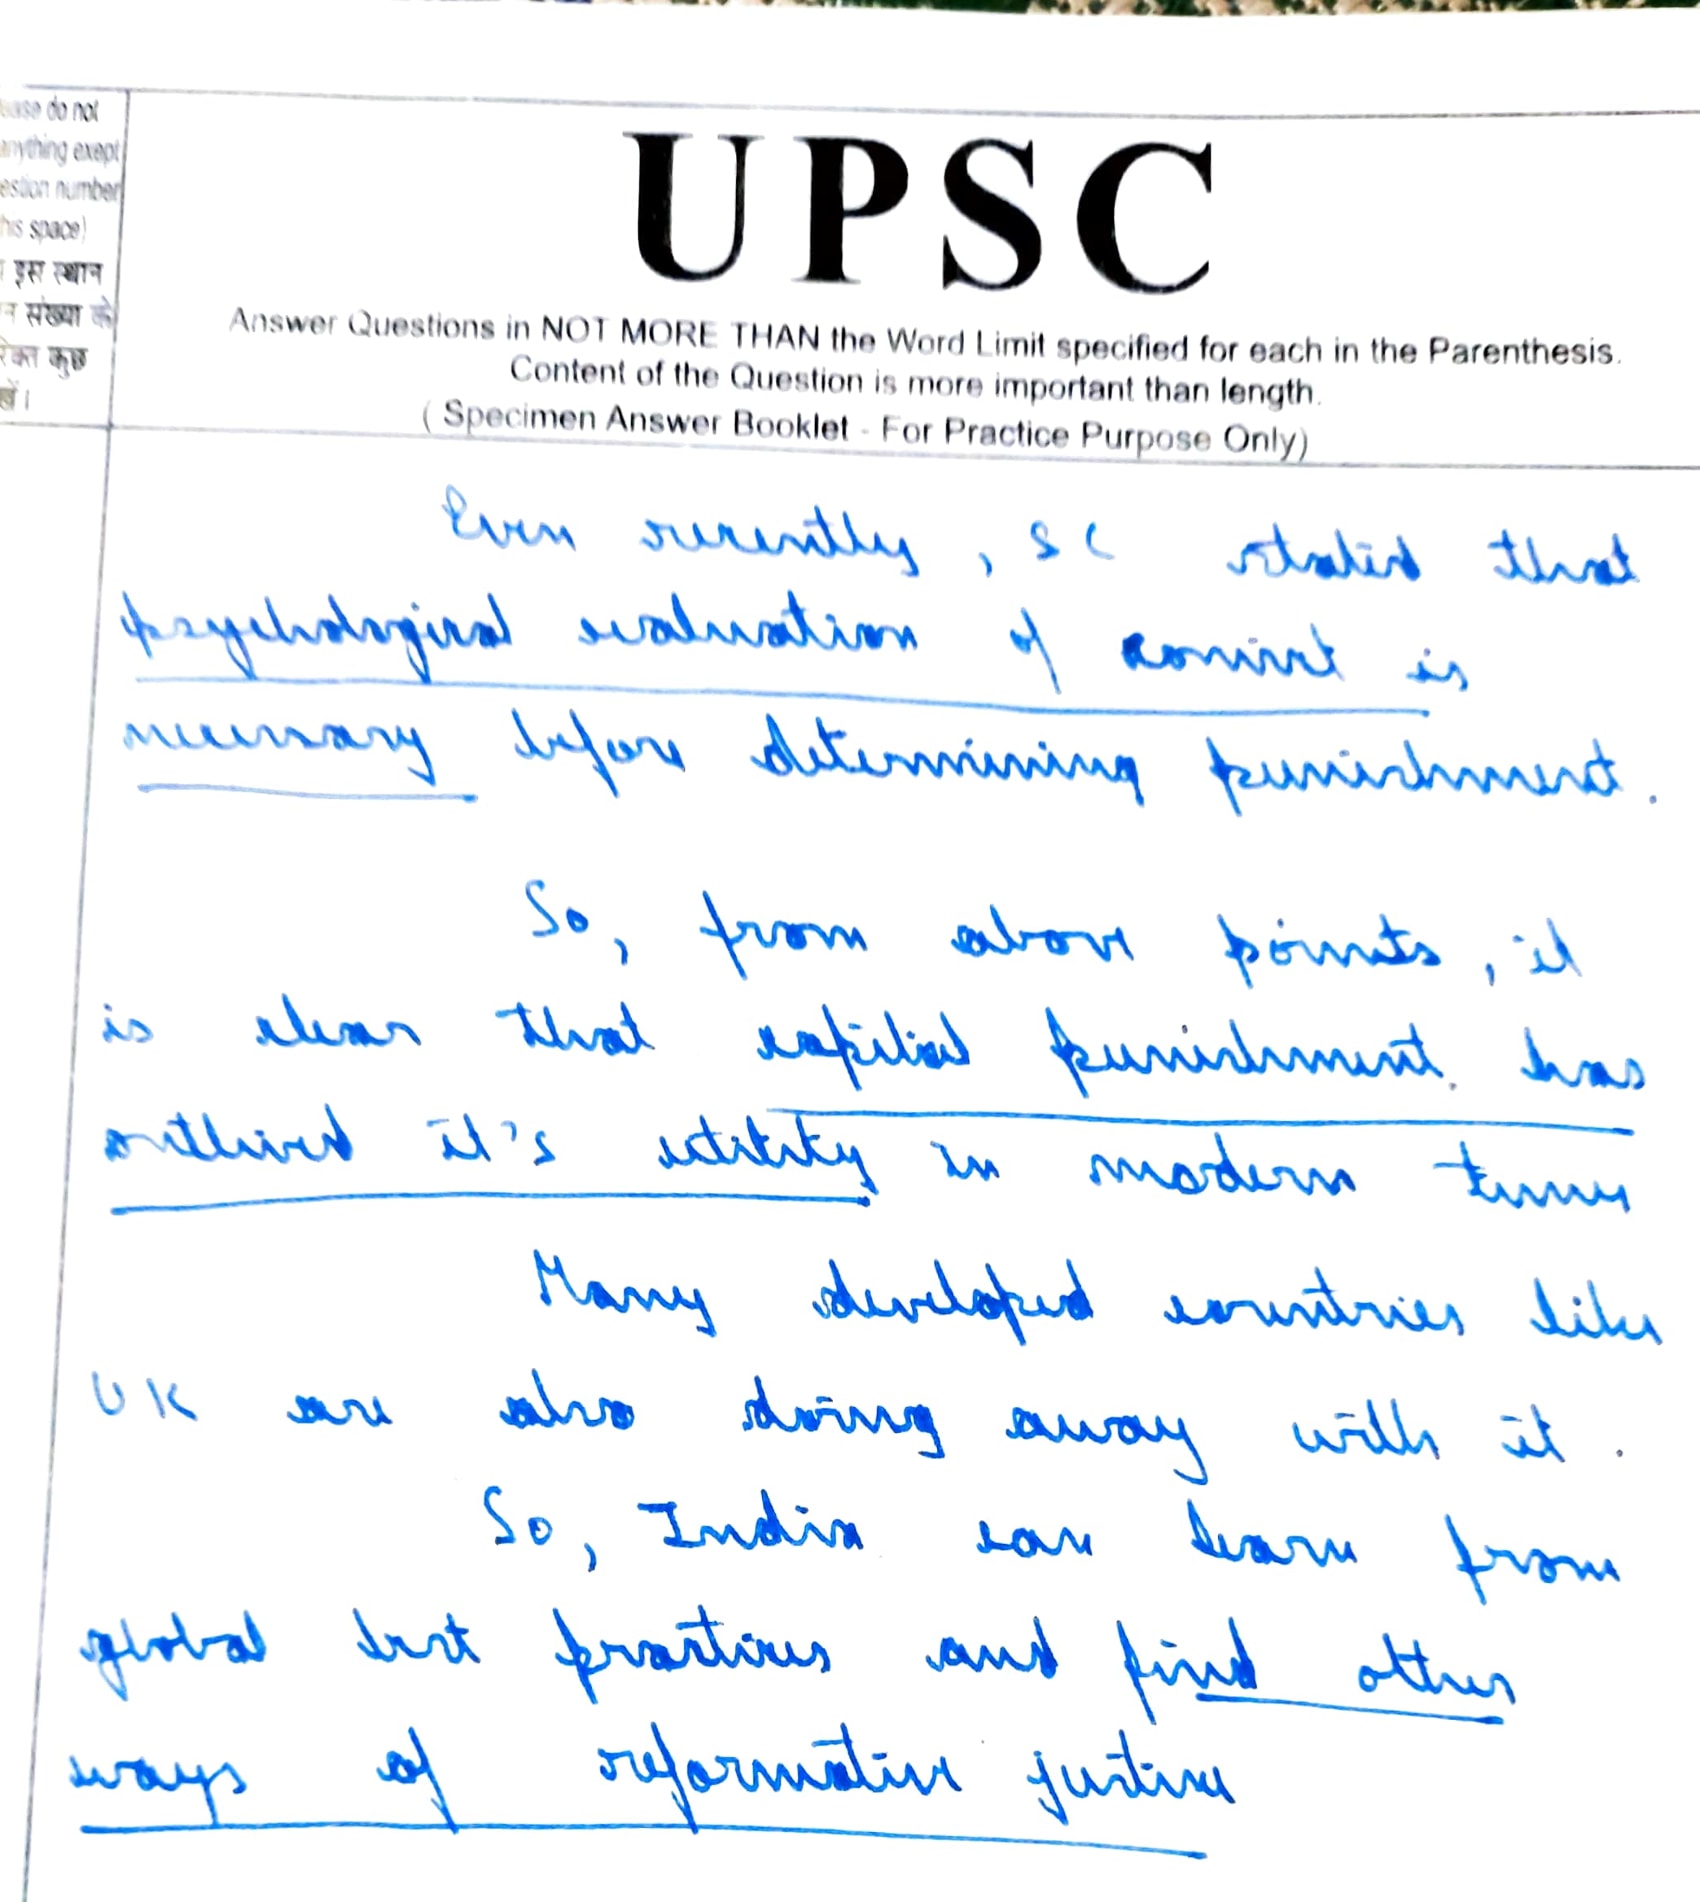 ease do not
anything exept
estion number
his space)
इस स्थान
न संख्या के
रिक्त कुछ
खें।
UPSC
Answer Questions in NOT MORE THAN the Word Limit specified for each in the Parenthesis.
Content of the Question is more important than length.
( Specimen Answer Booklet - For Practice Purpose Only)
Even recently, SC stated that
psychological evaluation of convict is
necessary before determining punishment.
So, from above points, it
is clear that capital punishment has
outlived it's utility in modern times
Many developed countries like
UK are also doing away with it.
So, India can learn from
global best practices and find other
ways of reformative justice